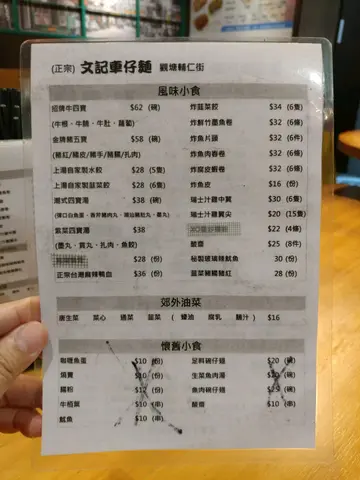 (正宗) 文記車仔麵 觀塘輔仁街
風味小食
招牌牛四寶 $62 (碗)
(牛根、牛腩、牛肚、蘿蔔)
金牌豬五寶 $58 (碗)
(豬紅/豬皮/豬手/豬腸/扎肉)
上湯自家製水餃 $28 (5隻)
上湯自家製韮菜餃 $28 (6隻)
潮式四寶湯 $38 (碗)
紫菜四寶湯 $38
(墨丸、貢丸、扎肉、魚餃)
$28 (份)
正宗台灣麻辣鴨血 $36 (份)
炸韮菜餃 $34 (6隻)
炸鮮竹墨魚卷 $32 (6條)
炸魚片頭 $32 (6件)
炸魚肉春卷 $32 (6條)
炸腐皮蝦卷 $32 (6條)
炸魚皮 $16 (份)
瑞士汁雞中翼 $30 (6隻)
瑞士汁雞翼尖 $20 (15隻)
$22 (4條)
齋燒 $25 (8件)
秘製玻璃辣魷魚 30 (份)
韮菜豬腸豬紅 28 (份)
郊外油菜
唐生菜 菜心 通菜 韮菜 ( 蠔油 腐乳 鮑汁 ) $16
懷舊小食
咖喱魚蛋 $10 (份)
燒賣 $10 (份)
腸粉 $12 (份)
牛栢葉 $10 (串)
魷魚 $10 (串)
足料碗仔翅 $20 (碗)
生菜魚肉湯 $20 (碗)
魚肉碗仔翅 $25 (碗)
齋燒 $10 (串)